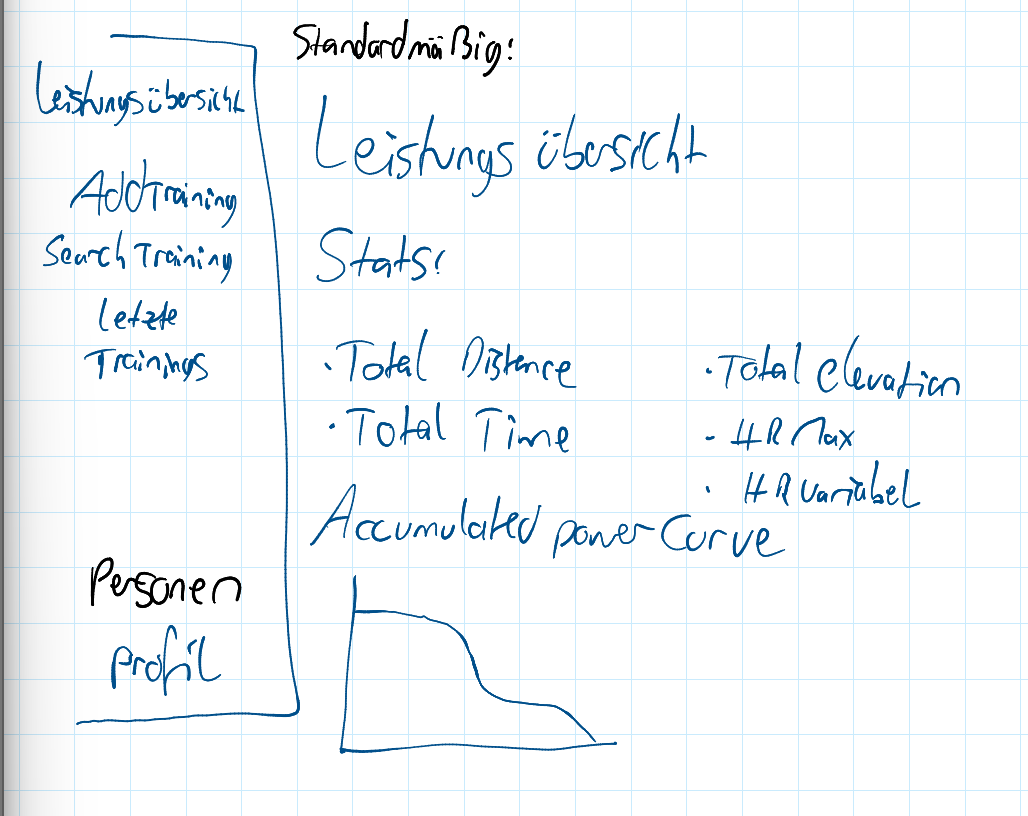 Leistungsübersicht
Add Training
Search Training
Letzte
Trainings
Personen
profil
Standardmäßig:
Leistungsübersicht
Stats:
· Total Distance
· Total Time
· Total elevation
- HR Max
· HR Variabel
Accumulated power Curve